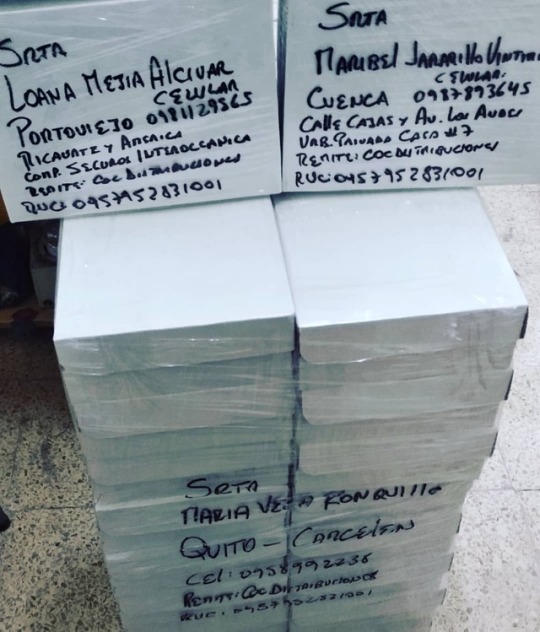 SRTA
LOANA MEJIA ALCIVAR
CELULAR
PORTOVIEJO 0981129565
RICAURTE Y AMERICA
COMP. SEGUROS INTEROCEANICA
REMITE: COC DISTRIBUCIONES
RUC: 0957952831001
SRTA
MARIBEL JARARILLO VINTIM
CELULAR.
CUENCA 0987893645
CALLE CAJAS Y AV. LOS ANDES
URB. PRIVADA CASA #7
REMITE: COC DISTRIBUCIONES
RUC: 0457952831001
SRTA
MARIA VERA RONQUILLO
QUITO - CARCELEN
CEL: 0958992236
REMITE: COC DISTRIBUCIONES
RUC: 0957952831001